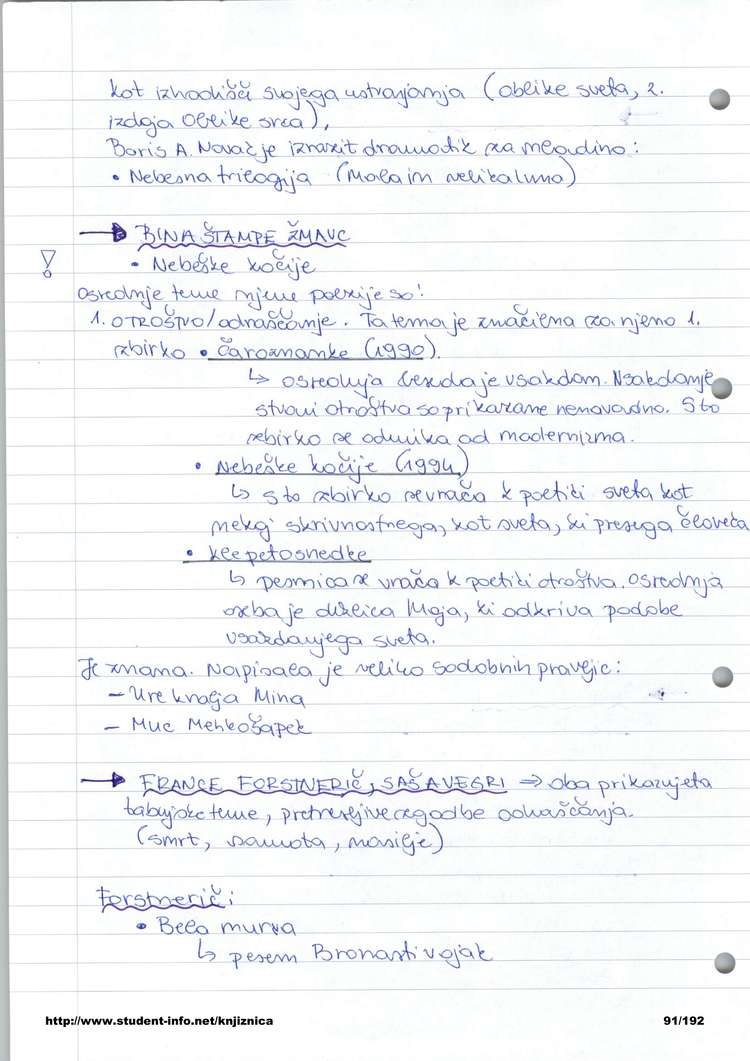 kot izhodišči svojega ustvarjanja (oblike sveta, 2.
izdaja oblike srca),
Boris A. Novak je izrazit dramatik za mladino:
• Nebesna trilogija (Mala in velika luna)
→ BINA ŠTAMPE ŽMAVC
! • Nebeške kočije
Osrednje teme njene poezije so:
1. OTROŠTVO/odraščanje. Ta tema je značilna za njeno 1.
zbirko • Čaroznanke (1990).
↳ osrednja beseda je vsakdan. Vsakdanje
stvari otroštva so prikazane nenavadno. S to
zbirko se odmika od modernizma.
• Nebeške kočije (1994)
↳ s to zbirko se vrača k poetiki sveta kot
nekaj skrivnostnega, kot sveta, ki presega človeka
• Klepetosnedke
↳ pesnica se vrača k poetiki otroštva. Osrednja
oseba je deklica Maja, ki odkriva podobe
vsakdanjega sveta.
Je znana. Napisala je veliko sodobnih pravljic:
– Ure kralja Mina
– Muc Mehkošapek
→ FRANCE FORSTNERIČ, SAŠA VEGRI ⇒ oba prikazujeta
tabujske teme, pretresljive zgodbe odraščanja.
(smrt, samota, nasilje)
Forstnerič:
• Bela murva
↳ pesem Bronasti vojak
http://www.student-info.net/knjiznica 91/192